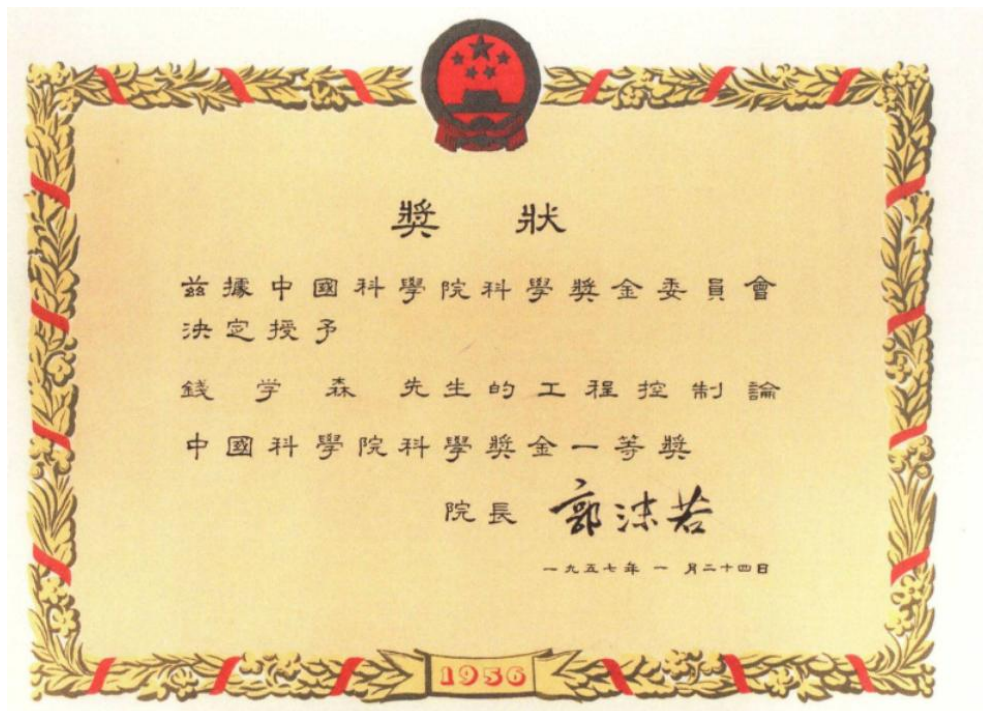 獎狀
茲據中國科學院科學獎金委員會
決定授予
錢学森先生的工程控制論
中國科學院科學獎金一等獎
院長 郭沫若
一九五七年一月二十四日
1956